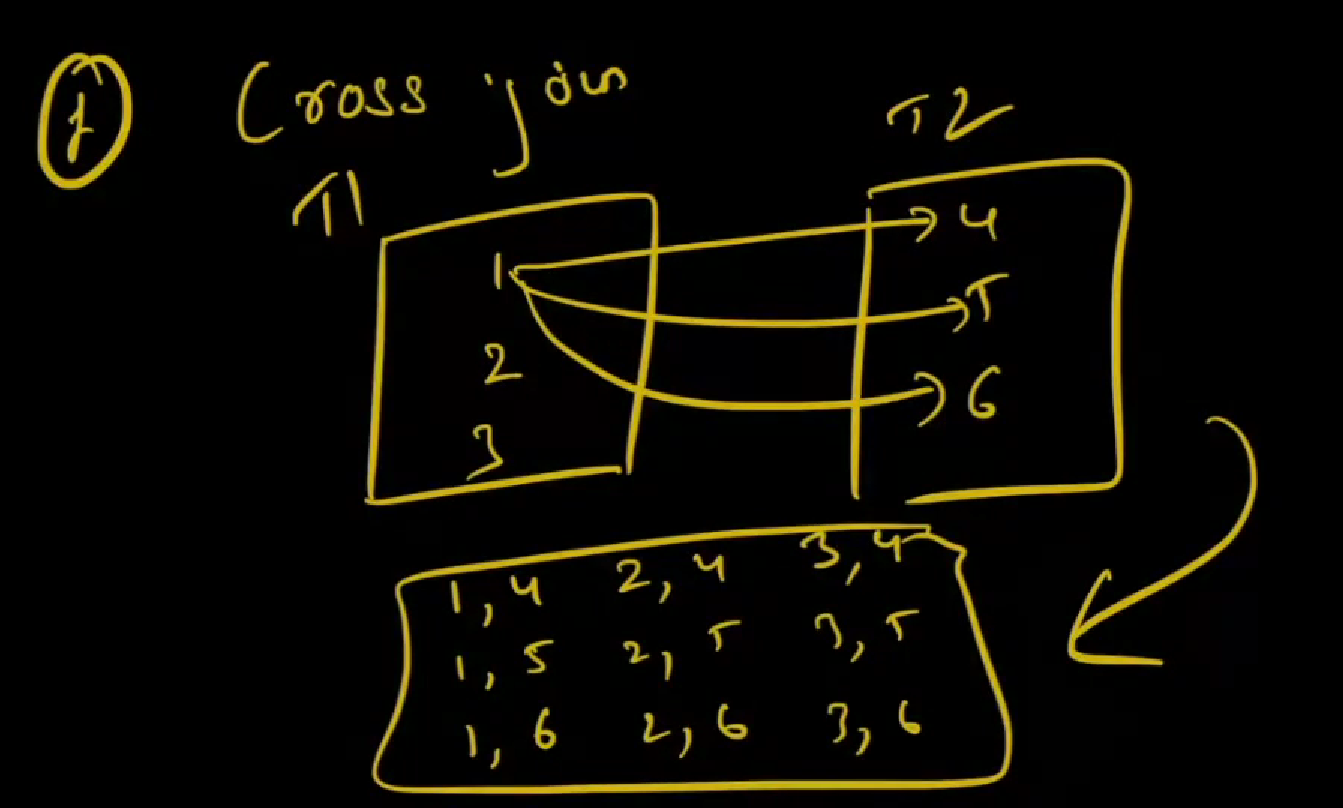 f Cross join
T1
T2
1
2
3
4
5
6
1, 4 2, 4 3, 4
1, 5 2, 5 3, 5
1, 6 2, 6 3, 6